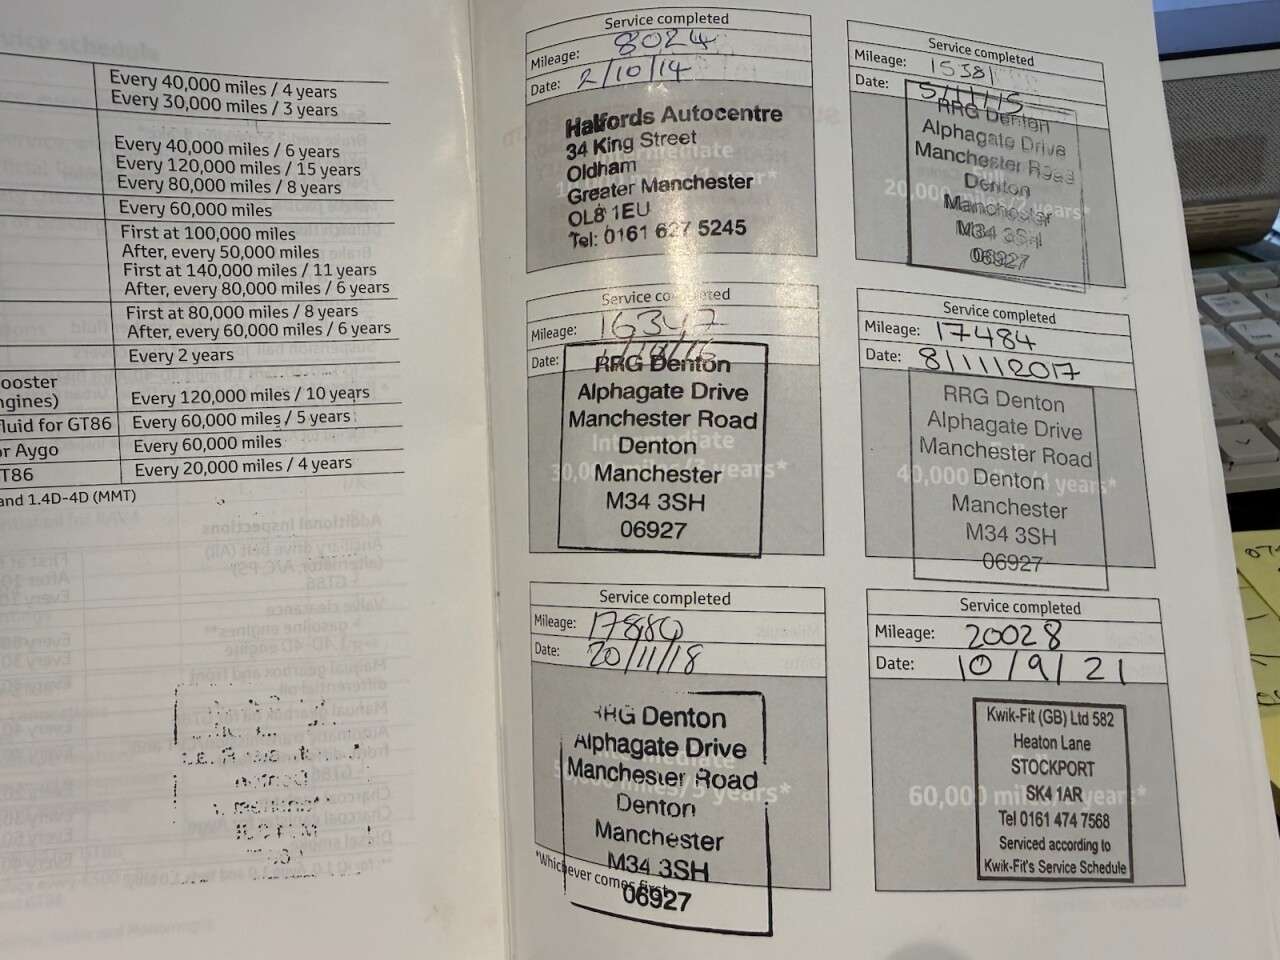 Every 40,000 miles / 4 years
Every 30,000 miles / 3 years
Every 40,000 miles / 6 years
Every 120,000 miles / 15 years
Every 80,000 miles / 8 years
Every 60,000 miles
First at 100,000 miles
After, every 50,000 miles
First at 140,000 miles / 11 years
After, every 80,000 miles / 6 years
First at 80,000 miles / 8 years
After, every 60,000 miles / 6 years
Every 2 years
ooster
ngines) Every 120,000 miles / 10 years
fluid for GT86 Every 60,000 miles / 5 years
or Aygo Every 60,000 miles
T86 Every 20,000 miles / 4 years
and 1.4D-4D (MMT)
Service completed
Mileage: 8024
Date: 2/10/14
Halfords Autocentre
34 King Street
Oldham
Intermediate
Greater Manchester
OL8 1EU
Tel: 0161 627 5245
Service completed
Mileage: 15381
Date: 5/11/15
RRG Denton
Alphagate Drive
Manchester Road
Denton
20,000 miles/2 years*
Manchester
M34 3SH
06927
Service completed
Mileage: 16347
Date:
RRG Denton
Alphagate Drive
Manchester Road
Denton
Intermediate
30,000 miles/3 years*
Manchester
M34 3SH
06927
Service completed
Mileage: 17484
Date: 8/11/2017
RRG Denton
Alphagate Drive
Manchester Road
Denton
40,000 miles/4 years*
Manchester
M34 3SH
06927
Service completed
Mileage: 17880
Date: 20/11/18
RRG Denton
Alphagate Drive
Intermediate
Manchester Road
50,000 miles/5 years*
Denton
Manchester
M34 3SH
06927
*Whichever comes first
Service completed
Mileage: 20028
Date: 10/9/21
Kwik-Fit (GB) Ltd 582
Heaton Lane
STOCKPORT
SK4 1AR
60,000 miles/6 years*
Tel 0161 474 7568
Serviced according to
Kwik-Fit's Service Schedule